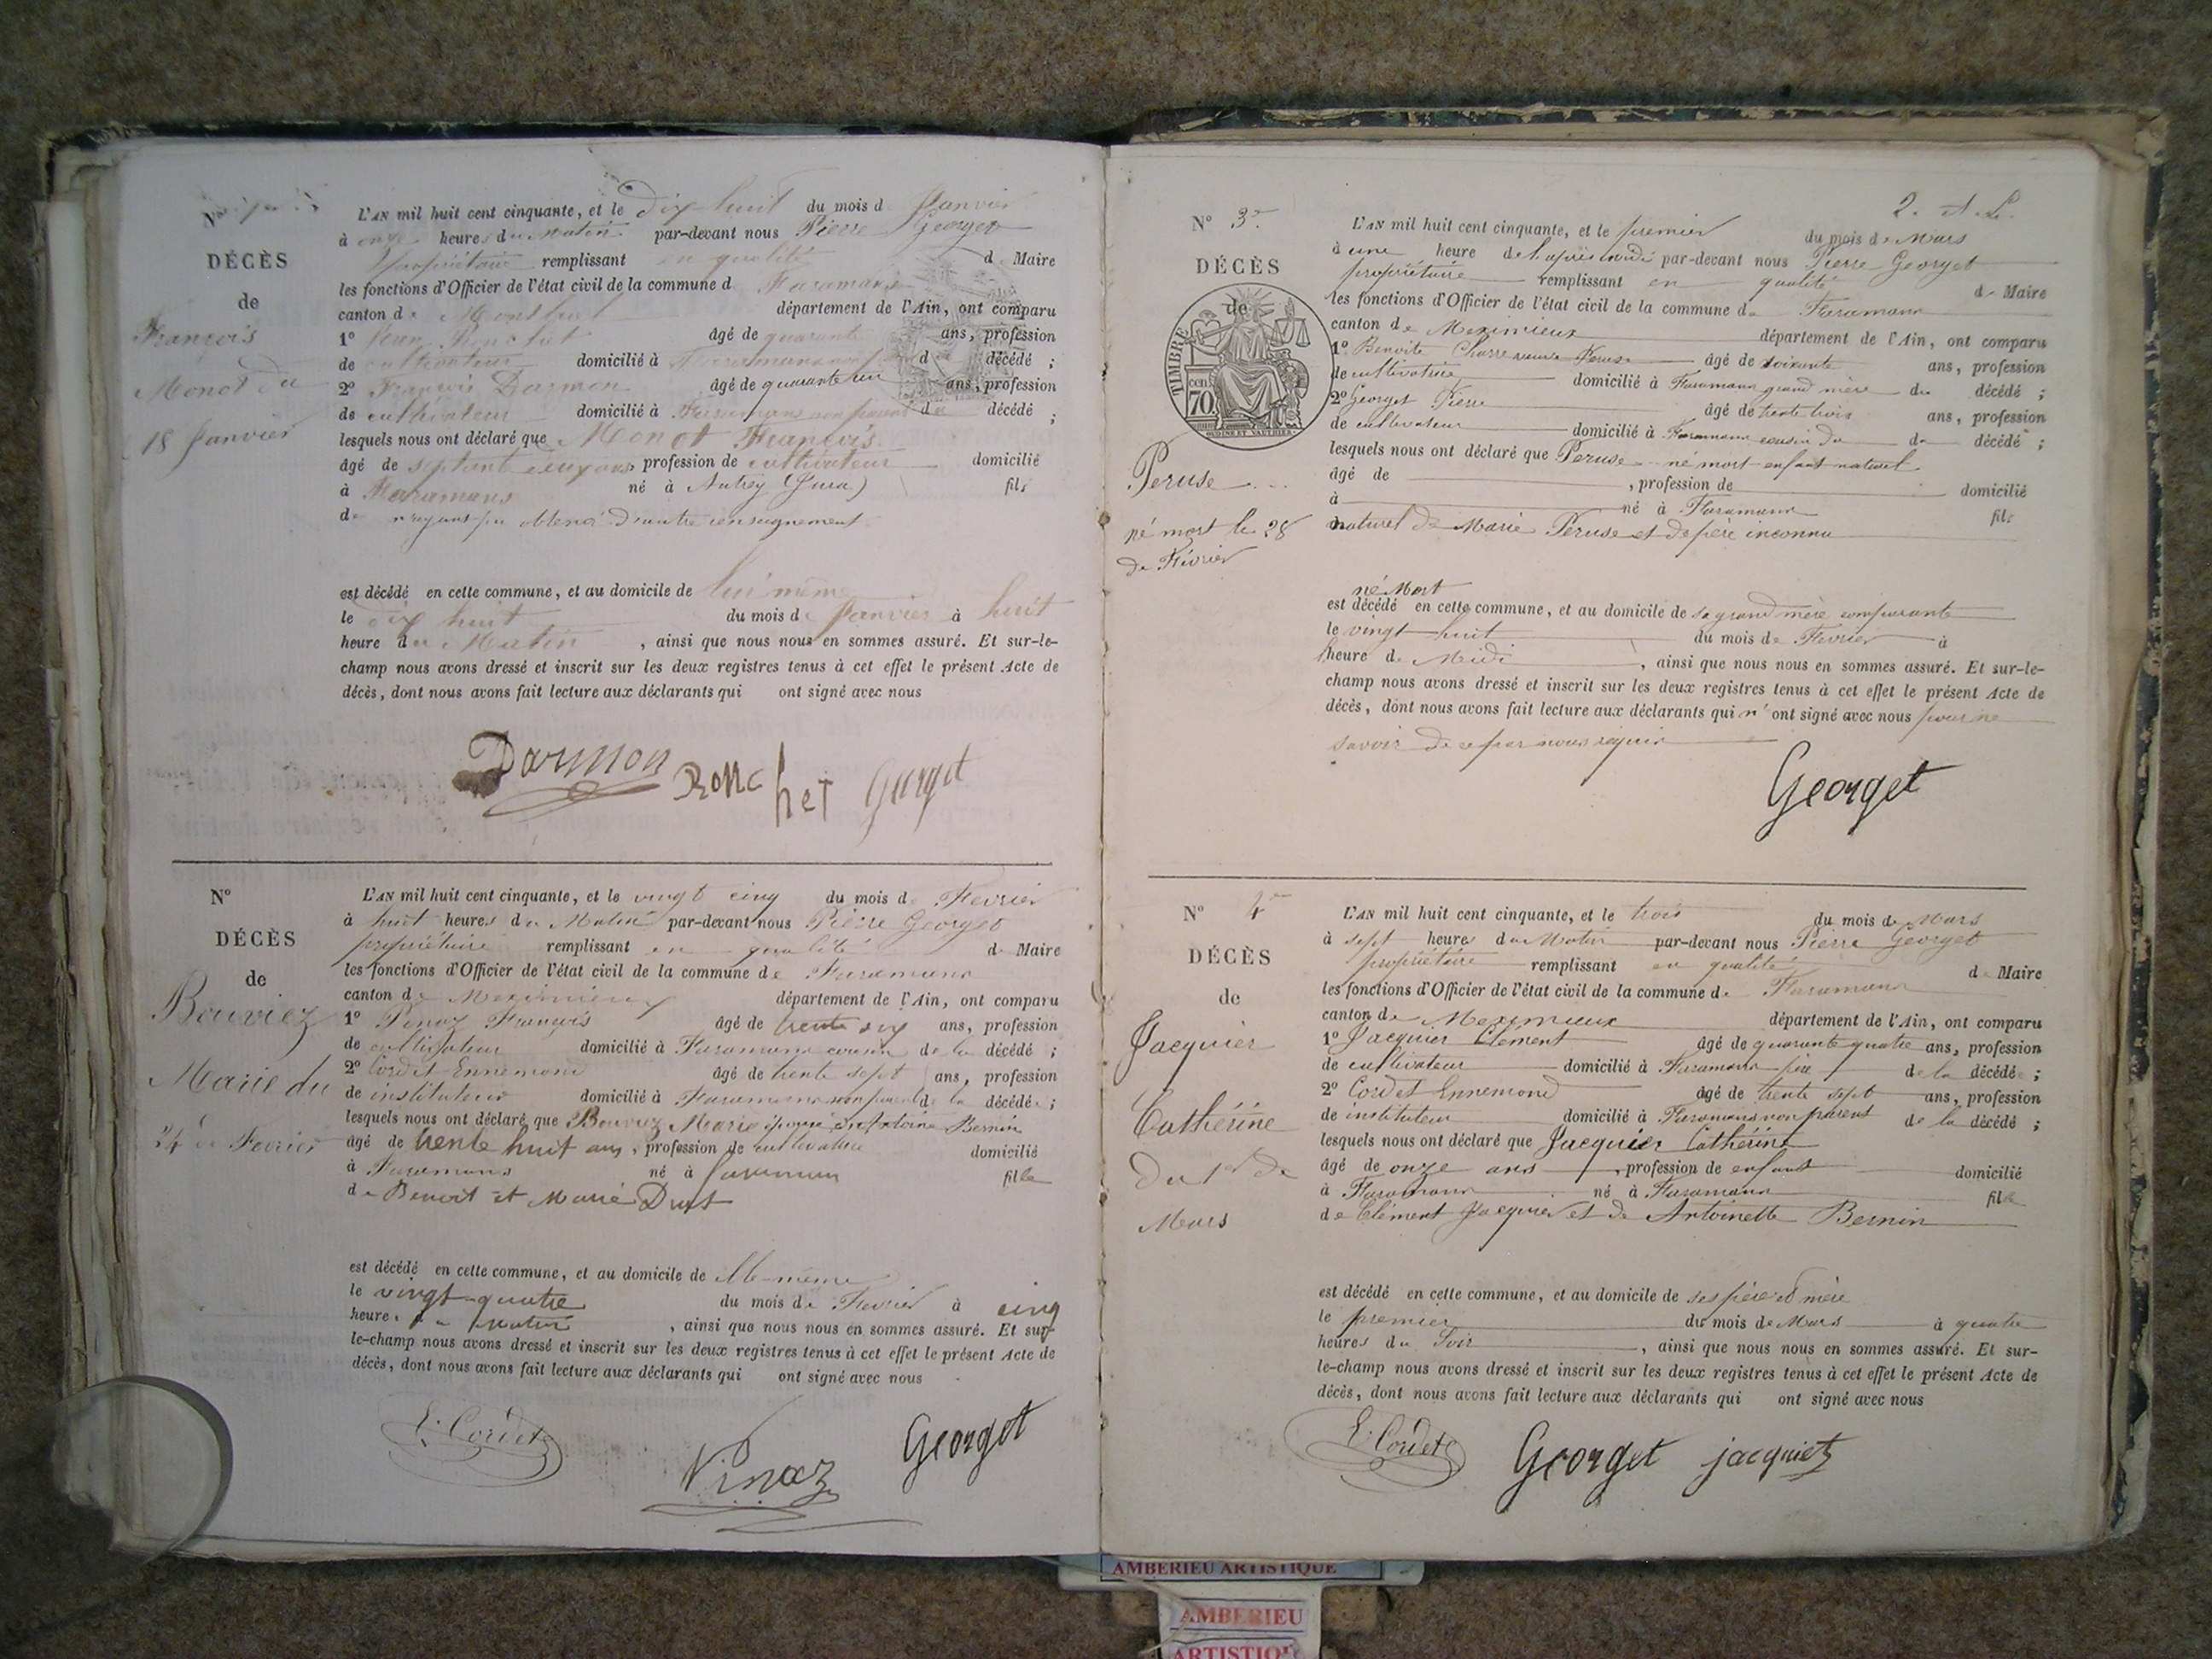 N°
DÉCÈS
de
François
Monot du
18 Janvier
L'AN mil huit cent cinquante, et le dix huit du mois d Janvier
à onze heures du Matin par-devant nous Pierre Georget
propriétaire remplissant en qualité de Maire
les fonctions d'Officier de l'état civil de la commune d Faramans
canton de Montluel département de l'Ain, ont comparu
1° Jean Ronchet âgé de quarante ans, profession
de cultivateur domicilié à Faramans d décédé ;
2° François Darmon âgé de quarante un ans, profession
de cultivateur domicilié à Faramans non parent du décédé ;
lesquels nous ont déclaré que Monot François
âgé de septante deux ans profession de cultivateur domicilié
à Faramans né à Autrey (Jura) fils
de n'ayant pu obtenir d'autre renseignement
est décédé en cette commune, et au domicile de lui même
le dix huit du mois de Janvier à huit
heure du Matin, ainsi que nous nous en sommes assuré. Et sur-le-
champ nous avons dressé et inscrit sur les deux registres tenus à cet effet le présent Acte de
décès, dont nous avons fait lecture aux déclarants qui ont signé avec nous
Darmon Ronchet Georget
N°
DÉCÈS
de
Bouviez
Marie du
24 de Fevrier
L'AN mil huit cent cinquante, et le vingt cinq du mois de Fevrier
à huit heures du Matin par-devant nous Pierre Georget
propriétaire remplissant en qualité de Maire
les fonctions d'Officier de l'état civil de la commune de Faramans
canton de Meximieux département de l'Ain, ont comparu
1° Pinaz François âgé de trente six ans, profession
de cultivateur domicilié à Faramans cousin de la décédée ;
2° Cordet Ennemond âgé de trente sept ans, profession
de instituteur domicilié à Faramans non parent de la décédée ;
lesquels nous ont déclaré que Bouviez Marie épouse d'Antoine Bernin
âgé de trente huit ans, profession de cultivatrice domicilié
à Faramans né à Faramans fille
de Benoit et Marie Dust
est décédé en cette commune, et au domicile de elle-même
le vingt-quatre du mois de Fevrier à cinq
heure du matin, ainsi que nous nous en sommes assuré. Et sur-
le-champ nous avons dressé et inscrit sur les deux registres tenus à cet effet le présent Acte de
décès, dont nous avons fait lecture aux déclarants qui ont signé avec nous
E. Cordet Pinaz Georget
2.
N° 3
DÉCÈS
de
TIMBRE
cen 70
Peruse
né mort le 28
de Février
L'AN mil huit cent cinquante, et le premier du mois de Mars
à une heure de l'après midi par-devant nous Pierre Georget
propriétaire remplissant en qualité de Maire
les fonctions d'Officier de l'état civil de la commune de Faramans
canton de Meximieux département de l'Ain, ont comparu
1° Benoite Peruse âgé de soixante ans, profession
de cultivatrice domicilié à Faramans grand mère du décédé ;
2° Georget Pierre âgé de trente trois ans, profession
de cultivateur domicilié à Faramans cousin du d décédé ;
lesquels nous ont déclaré que Peruse né mort enfant naturel
âgé de , profession de domicilié
à né à Faramans fils
naturel de Marie Peruse et de père inconnu
né Mort
est décédé en cette commune, et au domicile de sa grand mère comparante
le vingt huit du mois de Fevrier à
heure de Midi, ainsi que nous nous en sommes assuré. Et sur-le-
champ nous avons dressé et inscrit sur les deux registres tenus à cet effet le présent Acte de
décès, dont nous avons fait lecture aux déclarants qui n'ont signé avec nous pour ne
savoir de ce par nous requis
Georget
N° 4
DÉCÈS
de
Jacquier
Cathérine
Du 1er de
Mars
L'AN mil huit cent cinquante, et le trois du mois de Mars
à sept heures du Matin par-devant nous Pierre Georget
propriétaire remplissant en qualité de Maire
les fonctions d'Officier de l'état civil de la commune de Faramans
canton de Meximieux département de l'Ain, ont comparu
1° Jacquier Clément âgé de quarante quatre ans, profession
de cultivateur domicilié à Faramans père de la décédée ;
2° Cordet Ennemond âgé de trente sept ans, profession
de instituteur domicilié à Faramans non parent de la décédé ;
lesquels nous ont déclaré que Jacquier Cathérine
âgé de onze ans, profession de enfant domicilié
à Faramans né à Faramans fille
de Clément Jacquier et de Antoinette Bernin
est décédé en cette commune, et au domicile de ses père et mère
le premier du mois de Mars à quatre
heures du Soir, ainsi que nous nous en sommes assuré. Et sur-
le-champ nous avons dressé et inscrit sur les deux registres tenus à cet effet le présent Acte de
décès, dont nous avons fait lecture aux déclarants qui ont signé avec nous
E. Cordet Georget jacquier
AMBERIEU ARTISTIQUE
AMBERIEU
ARTISTIQUE